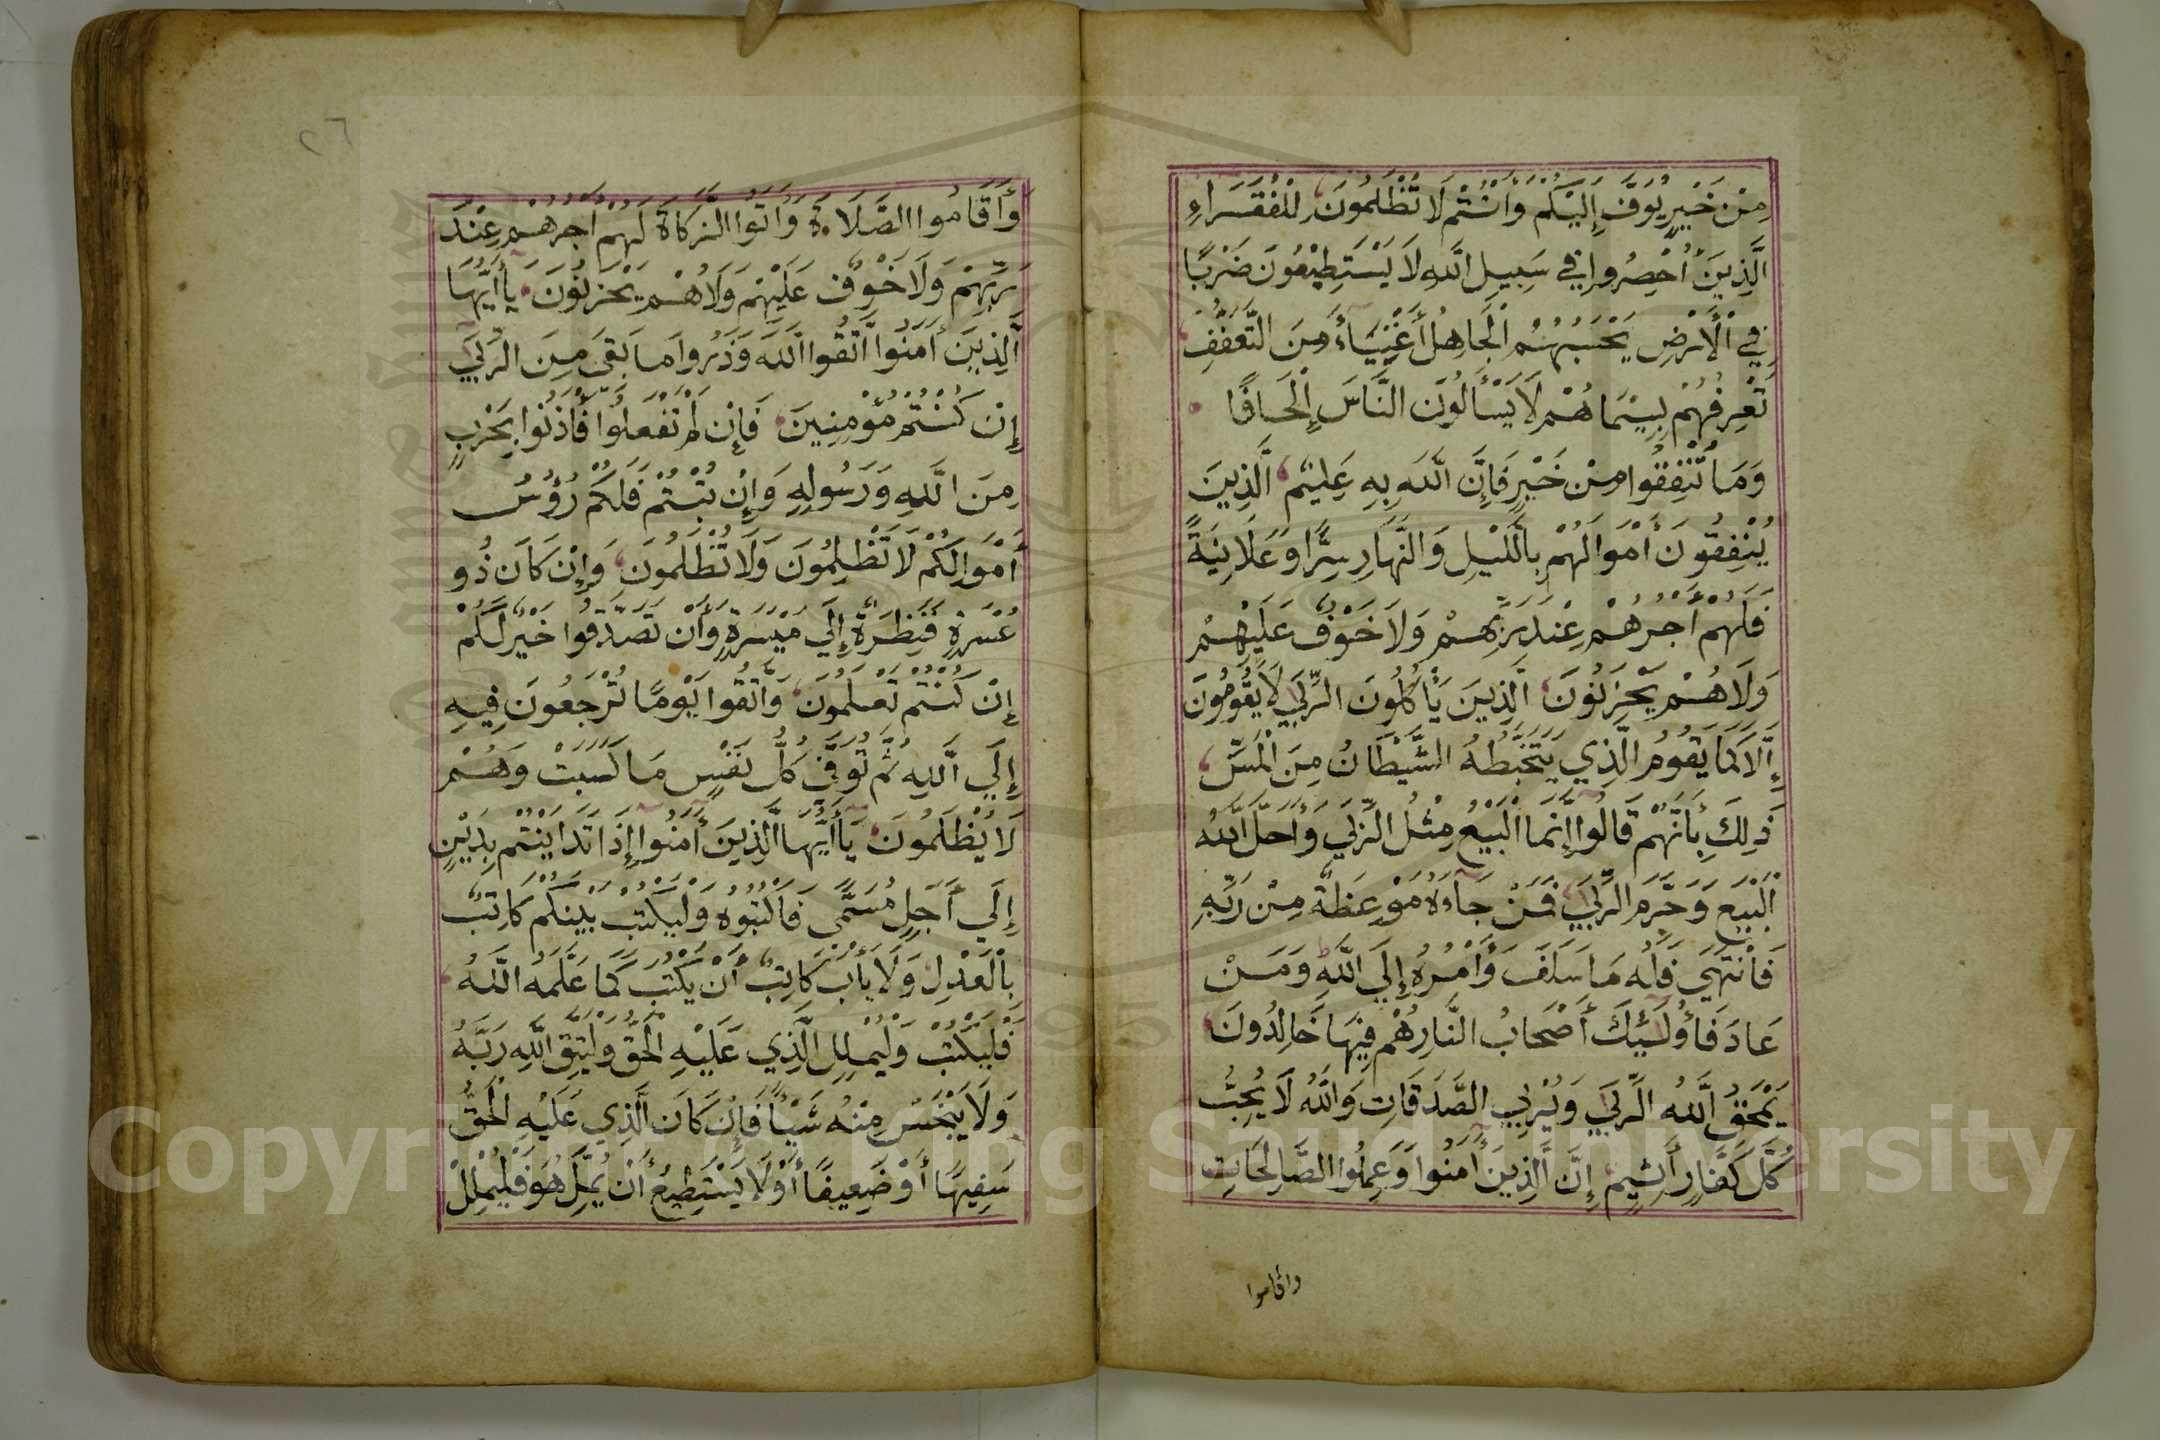 مِنْ خَيْرٍ يُوَفَّ إِلَيْكُمْ وَأَنْتُمْ لَا تُظْلَمُونَ لِلْفُقَرَاءِ
الَّذِينَ أُحْصِرُوا فِي سَبِيلِ اللَّهِ لَا يَسْتَطِيعُونَ ضَرْبًا
فِي الْأَرْضِ يَحْسَبُهُمُ الْجَاهِلُ أَغْنِيَاءَ مِنَ التَّعَفُّفِ
تَعْرِفُهُمْ بِسِيمَاهُمْ لَا يَسْأَلُونَ النَّاسَ إِلْحَافًا
وَمَا تُنْفِقُوا مِنْ خَيْرٍ فَإِنَّ اللَّهَ بِهِ عَلِيمٌ الَّذِينَ
يُنْفِقُونَ أَمْوَالَهُمْ بِاللَّيْلِ وَالنَّهَارِ سِرًّا وَعَلَانِيَةً
فَلَهُمْ أَجْرُهُمْ عِنْدَ رَبِّهِمْ وَلَا خَوْفٌ عَلَيْهِمْ
وَلَا هُمْ يَحْزَنُونَ الَّذِينَ يَأْكُلُونَ الرِّبَي لَا يَقُومُونَ
إِلَّا كَمَا يَقُومُ الَّذِي يَتَخَبَّطُهُ الشَّيْطَانُ مِنَ الْمَسِّ
ذَلِكَ بِأَنَّهُمْ قَالُوا إِنَّمَا الْبَيْعُ مِثْلُ الرِّبَي وَأَحَلَّ اللَّهُ
الْبَيْعَ وَحَرَّمَ الرِّبَي فَمَنْ جَاءَهُ مَوْعِظَةٌ مِنْ رَبِّهِ
فَانْتَهَي فَلَهُ مَا سَلَفَ وَأَمْرُهُ إِلَي اللَّهِ وَمَنْ
عَادَ فَأُولَئِكَ أَصْحَابُ النَّارِ هُمْ فِيهَا خَالِدُونَ
يَمْحَقُ اللَّهُ الرِّبَي وَيُرْبِي الصَّدَقَاتِ وَاللَّهُ لَا يُحِبُّ
كُلَّ كَفَّارٍ أَثِيمٍ إِنَّ الَّذِينَ أَمَنُوا وَعَمِلُوا الصَّالِحَاتِ
وأقاموا
٢٦
وَأَقَامُوا الصَّلَاةَ وَأَتَوُا الزَّكَاةَ لَهُمْ أَجْرُهُمْ عِنْدَ
رَبِّهِمْ وَلَا خَوْفٌ عَلَيْهِمْ وَلَا هُمْ يَحْزَنُونَ يَا أَيُّهَا
الَّذِينَ أَمَنُوا اتَّقُوا اللَّهَ وَذَرُوا مَا بَقِيَ مِنَ الرِّبَي
إِنْ كُنْتُمْ مُؤْمِنِينَ فَإِنْ لَمْ تَفْعَلُوا فَأْذَنُوا بِحَرْبٍ
مِنَ اللَّهِ وَرَسُولِهِ وَإِنْ تُبْتُمْ فَلَكُمْ رُؤُسُ
أَمْوَالِكُمْ لَا تَظْلِمُونَ وَلَا تُظْلَمُونَ وَإِنْ كَانَ ذُو
عُسْرَةٍ فَنَظِرَةٌ إِلَي مَيْسَرَةٍ وَأَنْ تَصَدَّقُوا خَيْرٌ لَكُمْ
إِنْ كُنْتُمْ تَعْلَمُونَ وَاتَّقُوا يَوْمًا تُرْجَعُونَ فِيهِ
إِلَي اللَّهِ ثُمَّ تُوَفَّي كُلُّ نَفْسٍ مَا كَسَبَتْ وَهُمْ
لَا يُظْلَمُونَ يَا أَيُّهَا الَّذِينَ أَمَنُوا إِذَا تَدَايَنْتُمْ بِدَيْنٍ
إِلَي أَجَلٍ مُسَمًّي فَاكْتُبُوهُ وَلْيَكْتُبْ بَيْنَكُمْ كَاتِبٌ
بِالْعَدْلِ وَلَا يَأْبَ كَاتِبٌ أَنْ يَكْتُبَ كَمَا عَلَّمَهُ اللَّهُ
فَلْيَكْتُبْ وَلْيُمْلِلِ الَّذِي عَلَيْهِ الْحَقُّ وَلْيَتَّقِ اللَّهَ رَبَّهُ
وَلَا يَبْخَسْ مِنْهُ شَيْئًا فَإِنْ كَانَ الَّذِي عَلَيْهِ الْحَقُّ
سَفِيهًا أَوْ ضَعِيفًا أَوْ لَا يَسْتَطِيعُ أَنْ يُمِلَّ هُوَ فَلْيُمْلِلْ
Copyright © King Saud University